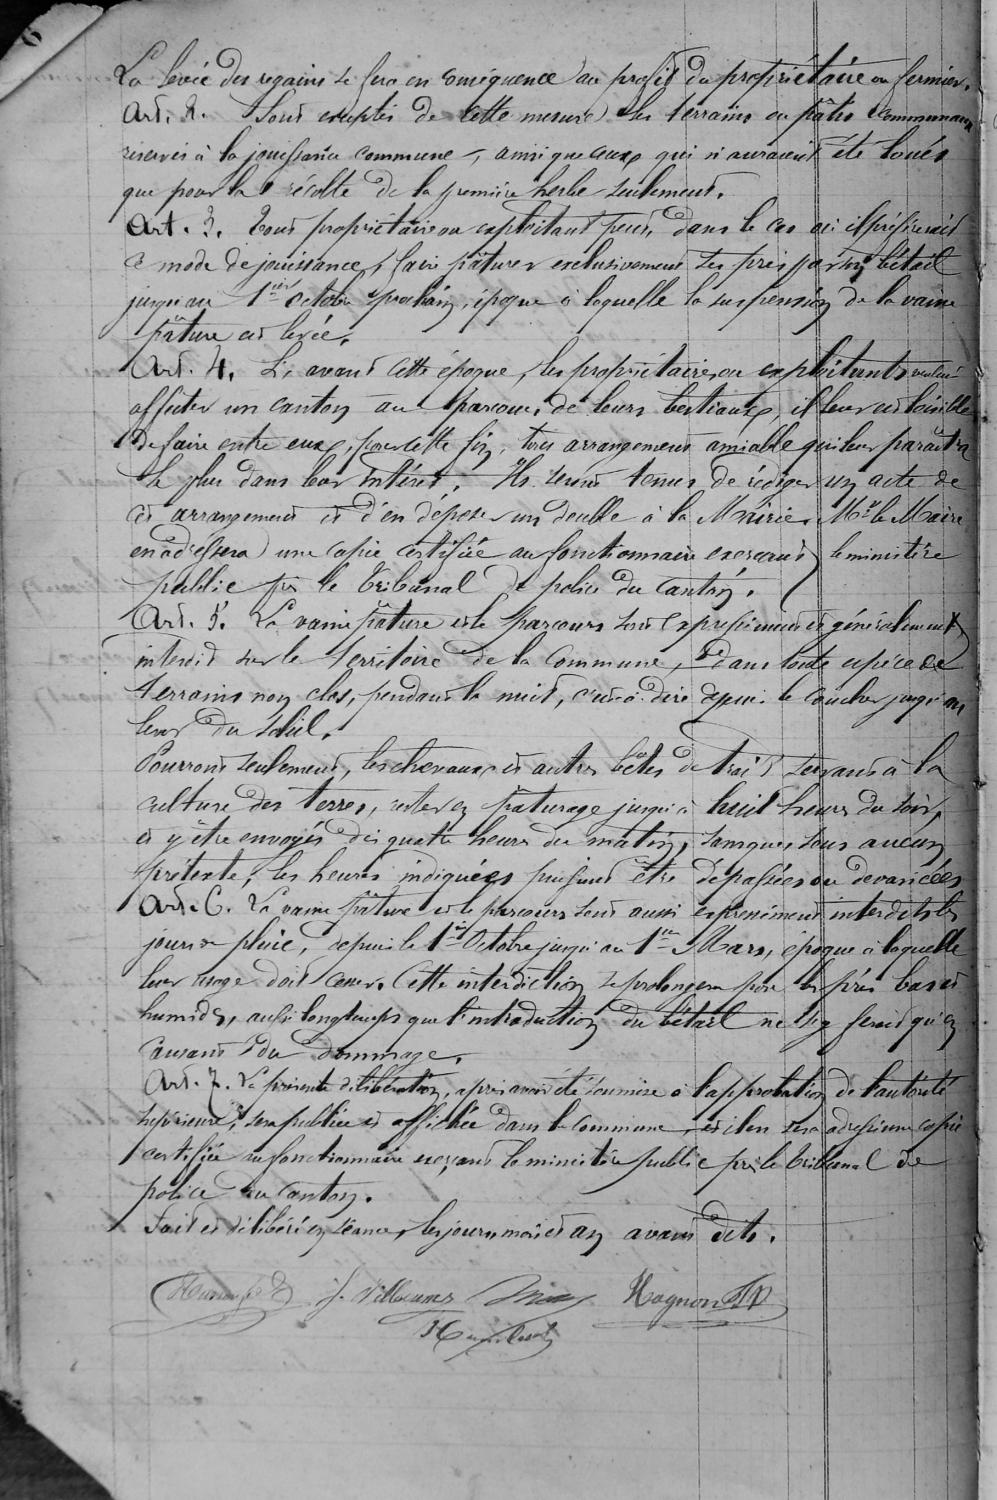 La levée des regains se fera en conséquence au profit du propriétaire ou fermier.
Art. 2. Sont exceptés de cette mesure les terrains ou pâtis communaux
réservés à la jouissance commune, ainsi que ceux qui n'auraient été loués
que pour la récolte de la première herbe seulement.
Art. 3. Tout propriétaire ou exploitant peut, dans le cas où il préférerait
ce mode de jouissance, faire pâturer exclusivement ses prés par son bétail
jusqu'au 1er octobre prochain, époque à laquelle la suspension de la vaine
pâture est levée.
Art. 4. Si, avant cette époque, les propriétaires ou exploitants veulent
affecter un canton au parcours de leurs bestiaux, il leur est loisible
de faire entre eux, pour cette fin, tout arrangement amiable qui leur paraîtra
le plus dans leur intérêt. Ils seront tenus de rédiger un acte de
cet arrangement et d'en déposer un double à la Mairie. Mr le Maire
en adressera une copie certifiée au fonctionnaire exerçant le ministère
public près le Tribunal de police du Canton.
Art. 5. La vaine pâture et le parcours sont expressément et généralement
interdits sur le territoire de la Commune, dans toute espèce de
terrains non clos, pendant la nuit, c'est-à-dire depuis le coucher jusqu'au
lever du soleil.
Pourront seulement, les chevaux et autres bêtes de trait servant à la
culture des terres, rester en pâturage jusqu'à huit heures du soir,
et y être envoyés dès quatre heures du matin, sans que, sous aucun
prétexte, les heures indiquées puissent être dépassées ou devancées
Art. 6. La vaine pâture et le parcours sont aussi expressément interdits les
jours de pluie, depuis le 1er Octobre jusqu'au 1er Mars, époque à laquelle
leur usage doit cesser. Cette interdiction se prolongera pour les prés bas et
humides, aussi longtemps que l'introduction du bétail ne s'y ferait qu'en
causant du dommage.
Art. 7. La présente délibération, après avoir été soumise à l'approbation de l'autorité
supérieure, sera publiée et affichée dans la Commune, et il en sera adressé une copie
certifiée au fonctionnaire exerçant le ministère public près le tribunal de
police du Canton.
Fait et délibéré en séance, les jour, mois et an avant dits.
J. Villaume Hognon